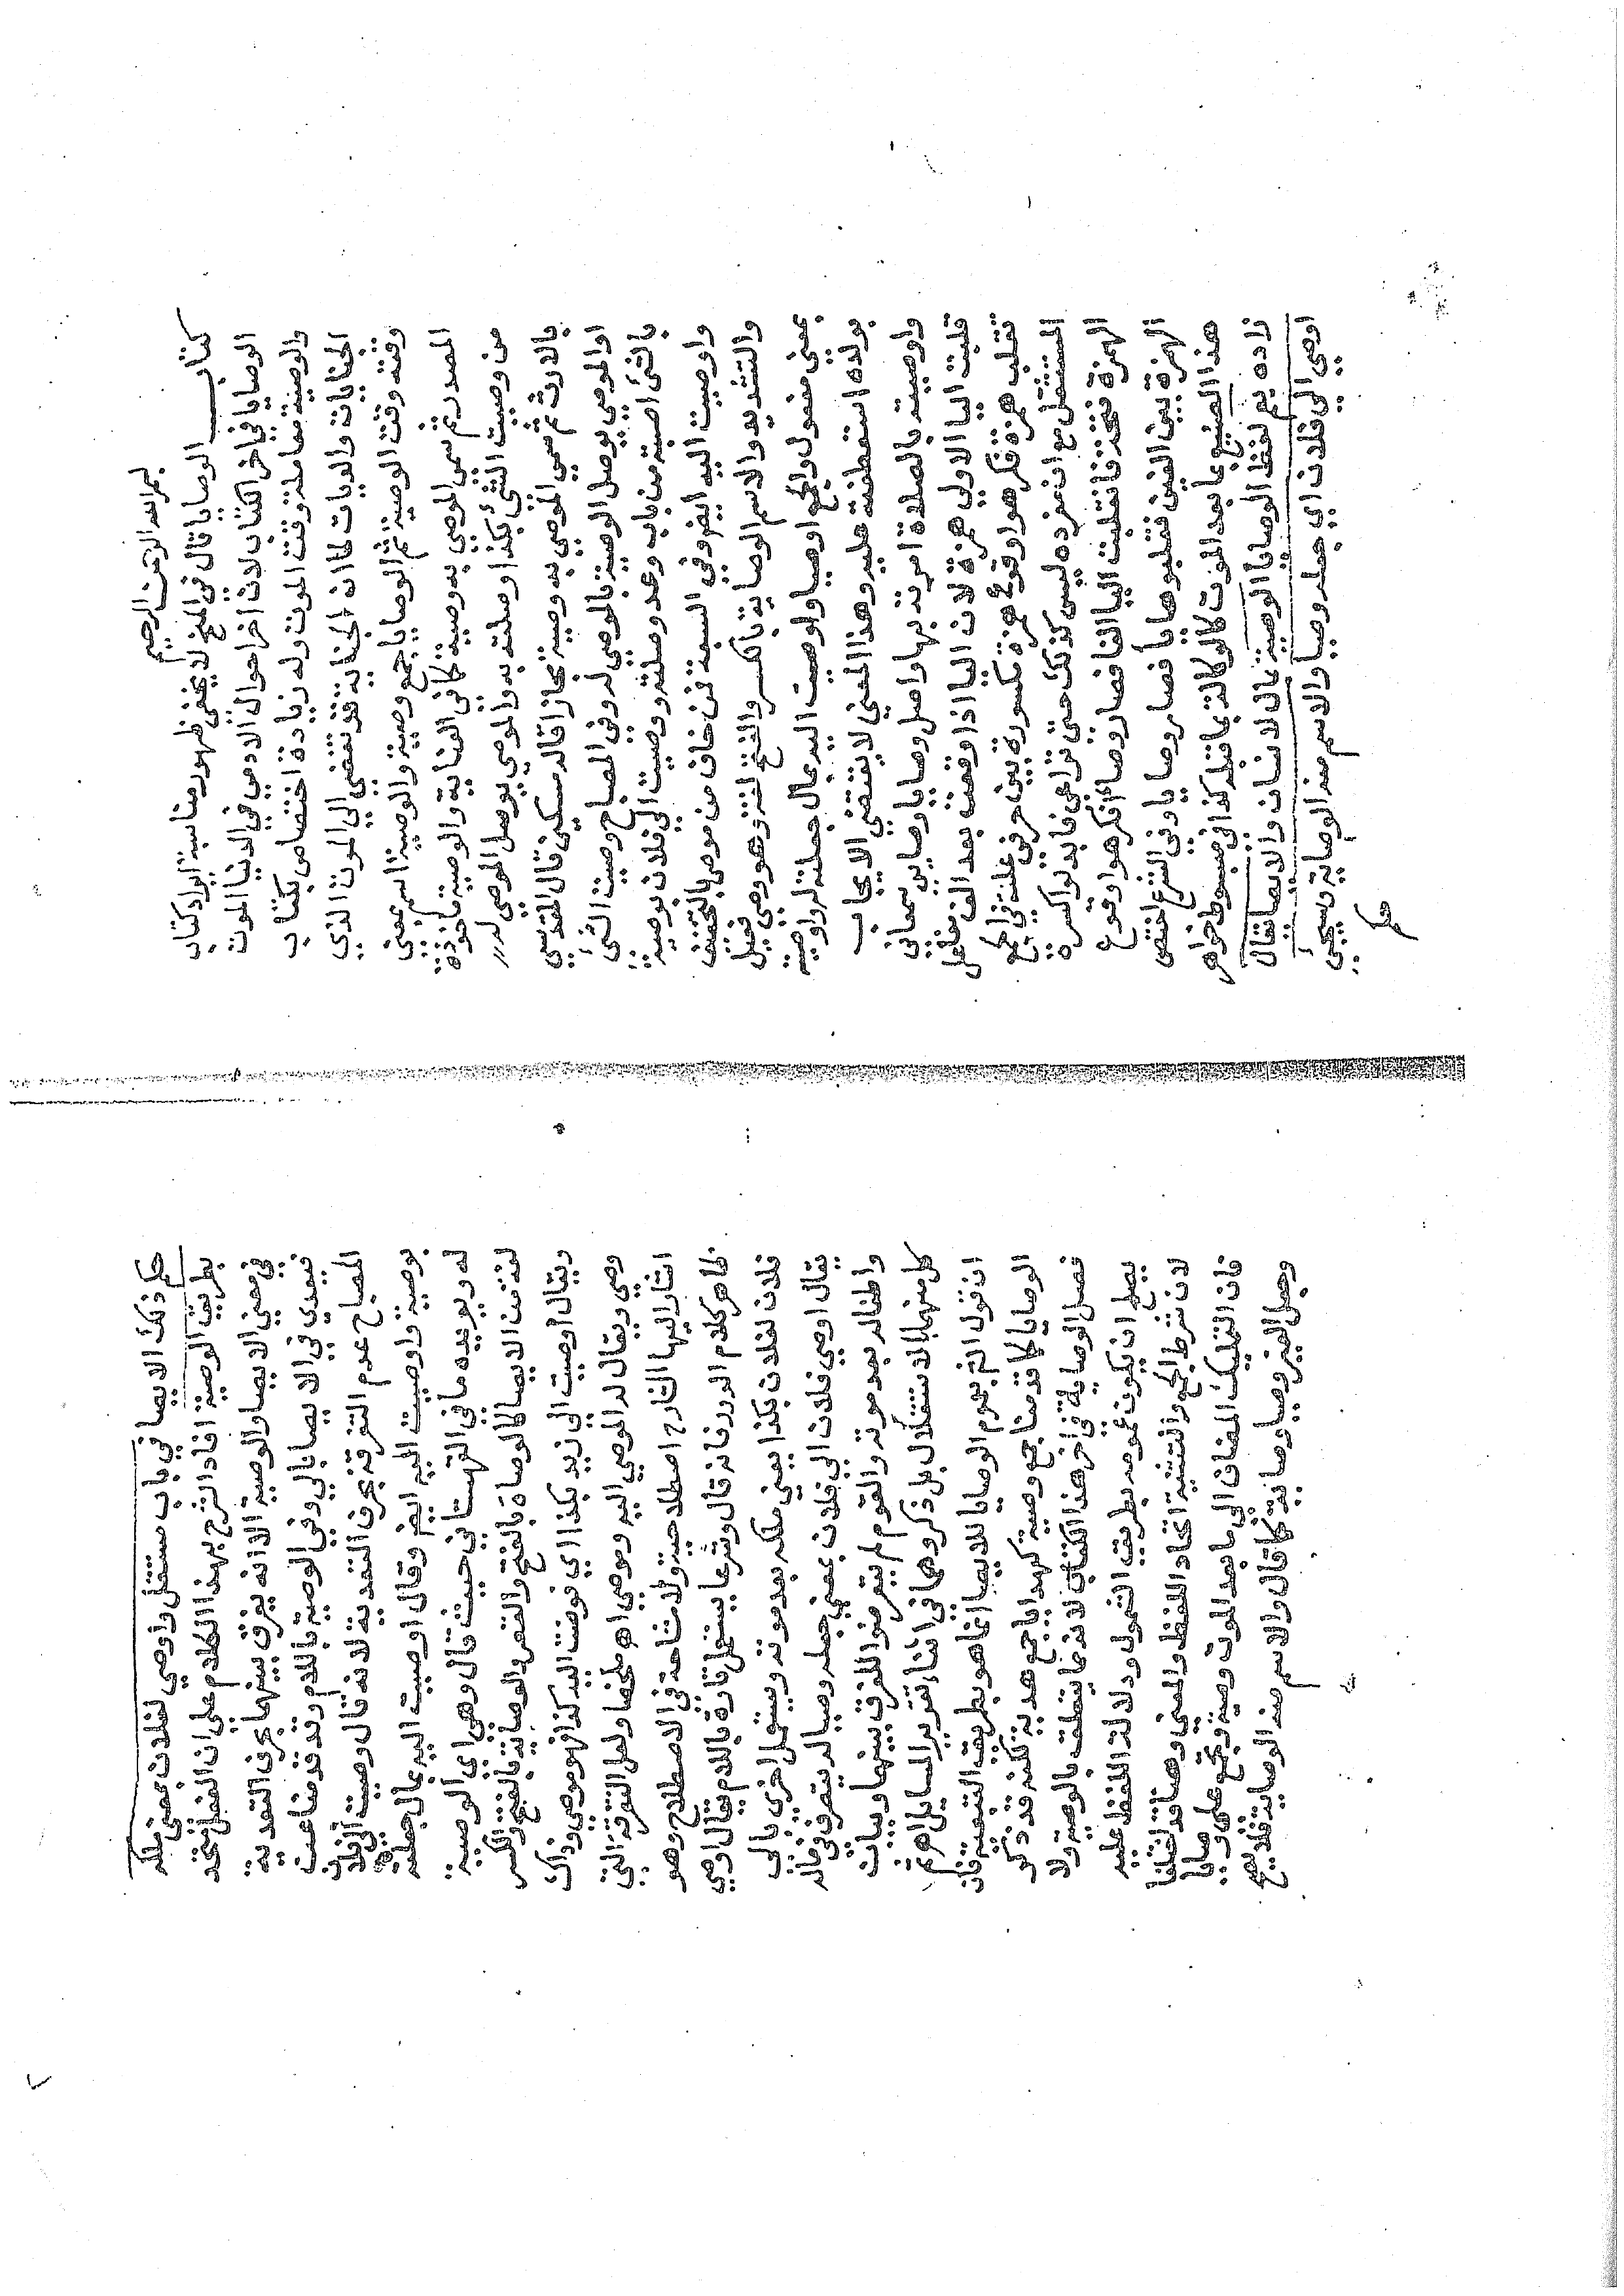 بسم الله الرحمن الرحيم
كتاب الوصايا قال في المنح لا يخفى ظهور مناسبة ايراد كتاب
الوصايا في اخر الكتاب لان اخر احوال الادمي في الدنيا الموت
والوصية معاملة وقت الموت وله زيادة اختصاص بكتاب
الجنايات والديات لما ان الجناية قد تفضي الى الموت الذي
وقته وقت الوصية ثم الوصايا جمع وصية والوصية اسم بمعنى
المصدر ثم سمى الموصي به وصية كما في العناية والوصية ماخوذة
من وصيت الشئ بكذا وصلته به والموصي يوصل الموصي له
بالارث ثم سمي الموصي به وصية مجازا قاله مسكين قال المقدسي
او الموصي يوصل الوصية بالموصى له وفي المصباح وصيت الشئ
بالشئ اصيته من باب وعد وصلته ووصيت الى فلان توصية
واوصيت اليه ايض وفي السبعة فمن خاف من موص بالتخفيف
والتشديد والاسم الوصاية بالكسر والفتح لغة وهو وصي فعيل
بمعنى مفعول والجمع اوصيا واوصيت اليه بمال جعلته له واوصيته
بولده استعطفته عليه وهذا المعنى لا يقتضي الايجاب
واوصيته بالصلاة امرته بها واصل وصايا وصايي
قلبت اليا الاولى همزة لان اليا اذا وقعت بعد الف مفاعل
تقلب همزة فكرهوا وقوع همزة مكسورة بين حرفي علة في الجمع
المستثقل مع ان مفرده ليس كذلك حتى تراعى فابدلوا كسرة
الهمزة فتحة فانقلبت اليا الفا فصار وصاأ فكرهوا وقوع
الهمزة بين الفين فقلبوها يأ فصار وصايا وفي الشرع اختص
هذا الصنيع بما بعد الموت كالوكالة بما قبله كذا في مبسوط خواهر
زاده يعم لفظ الوصايا الوصية بمال لانسان والايصا يقال
اوصى الى فلان اي جعله وصيا والاسم منه الوصاية وسيجي
حكم
حكم ذلك الايصا في باب مستقل واوصي لفلان بمعنى ملكه
بطريق الوصية افاد الشرح بهذا الكلام على ان الفعل متحد
في معنى الايصا والوصية الا انه يفرق بينهما بحرف التعدية
فيعدي في الايصا بالى وفي الوصية باللام وقد قدمنا عن
المصباح عدم التفرقة بحرف التعدية لانه قال وصيت الى فلان
بوصية واوصيت اليه ايض وقال اوصيت اليه بمال جعلته
له ويويده ما في القهستاني حيث قال وهو اي الوصية
لغة من الايصا كالوصاة بالفتح والقصر والوصاية بالفتح والكسر
ويقال اوصيت الى زيد بكذا اي فوضت اليه كذا فهو موصي وذاك
وصي ويقال له الموصي اليه وموصي اهـ ملخصا ولعل التفرقة التي
اشار اليها الشارح اصطلاحية ولا مشاحة في الاصطلاح وهو
ظاهر كلام الدرر فانه قال وشرعا يستعمل تارة باللام يقال اوصي
فلان لفلان بكذا بمعنى ملكه بعد موته ويستعمل اخرى بالى
يقال اوصي فلان الى فلان بمعنى جعله وصيا له يتصرف في ماله
واطفاله بعد موته والقوم لم يتعرضوا للفرق بينهما وبيان
كل منهما بالاستقلال بل ذكروهما في اثنا تقرير المسايل اهـ ثم
ان قول الشرح بعموم الوصايا للايصا انما هو بطريق التبعية فان
الوصايا كما قدمنا جمع وصية كهدايا جمع هدية لكنه قد ذكر
فصل الوصاية في اخر هذا الكتاب لانه مما يتعلق بالوصية ولا
يصلح ان يكون عمومه بطريق الشمول ودلالة اللفظ عليه
لان شرط الجمع والتثنية اتحاد اللفظ والمعنى وهنا قد اختلفا
فان التمليك المضاف الى ما بعد الموت وصية وتجمع على وصايا
وجعل الغير وصيا وصاية كما قال والاسم منه الوصاية فلا يصح